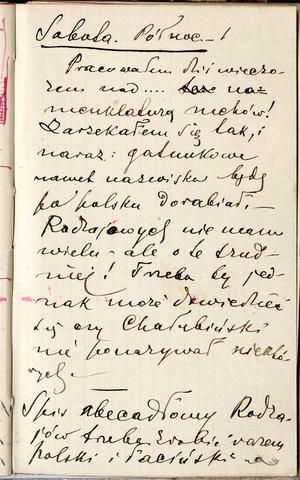 Sobota. Północ – !
Pracowałem dziś wieczo-
rem nad....
menklaturą mchów!
Zarzekałem się tak, i
naraz: gatunkowe
nawet nazwiska będę
po polsku dorabiał.
Rodzajowych nie mam
wielu – ale o te trud-
niej! Trzeba by jed-
nak może dowiedzieć
się czy Chałubiński
nie ponazywał niektó-
rych –
Spis abecadłowy Rodza-
jów trzeba zrobić razem
polski i łaciński –